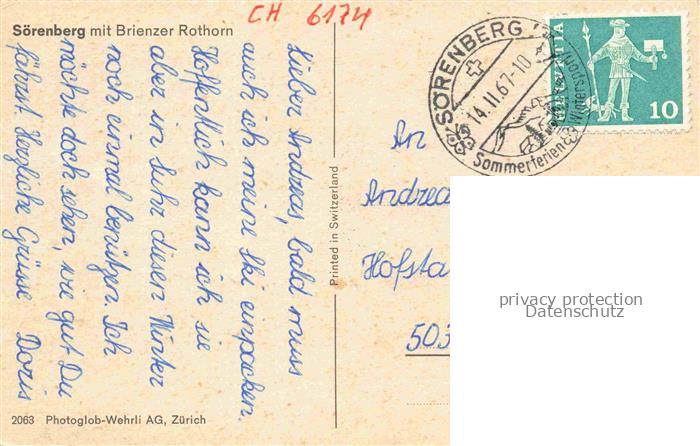 CH 6174
Sörenberg mit Brienzer Rothorn
Lieber Andreas, bald muss
auch ich meine Ski einpacken.
Hoffentlich kann ich sie
aber in Suhr diesen Winter
noch einmal benützen. Ich
möchte doch sehen, wie gut Du
fährst. Herzliche Grüsse Doris
2063 Photoglob-Wehrli AG, Zürich
Printed in Switzerland
SÖRENBERG
14.II.67-10
Sommerferien
Wintersport
HELVETIA
10
An
Andrea
Hofsta
503
privacy protection
Datenschutz